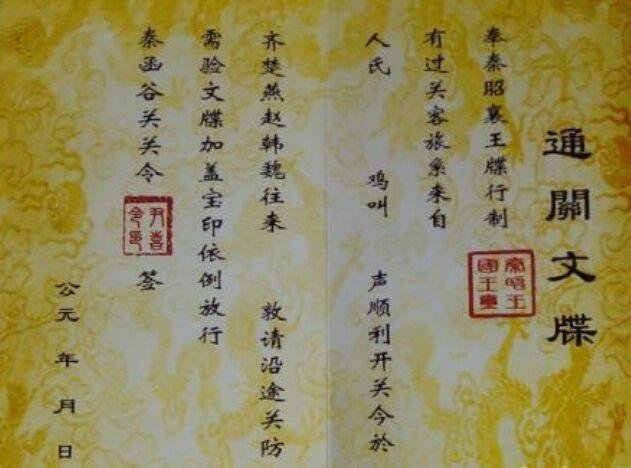 通關文牒
奉秦昭襄王牒行制
秦昭王
國王璽
有过关客旅系来自
人民 鸡叫 声顺利开关今於
齐楚燕赵韩魏往来 敦请沿途关防
需验文牒加盖宝印依例放行
秦函谷关关令
尹喜
令印
签
公元 年 月 日